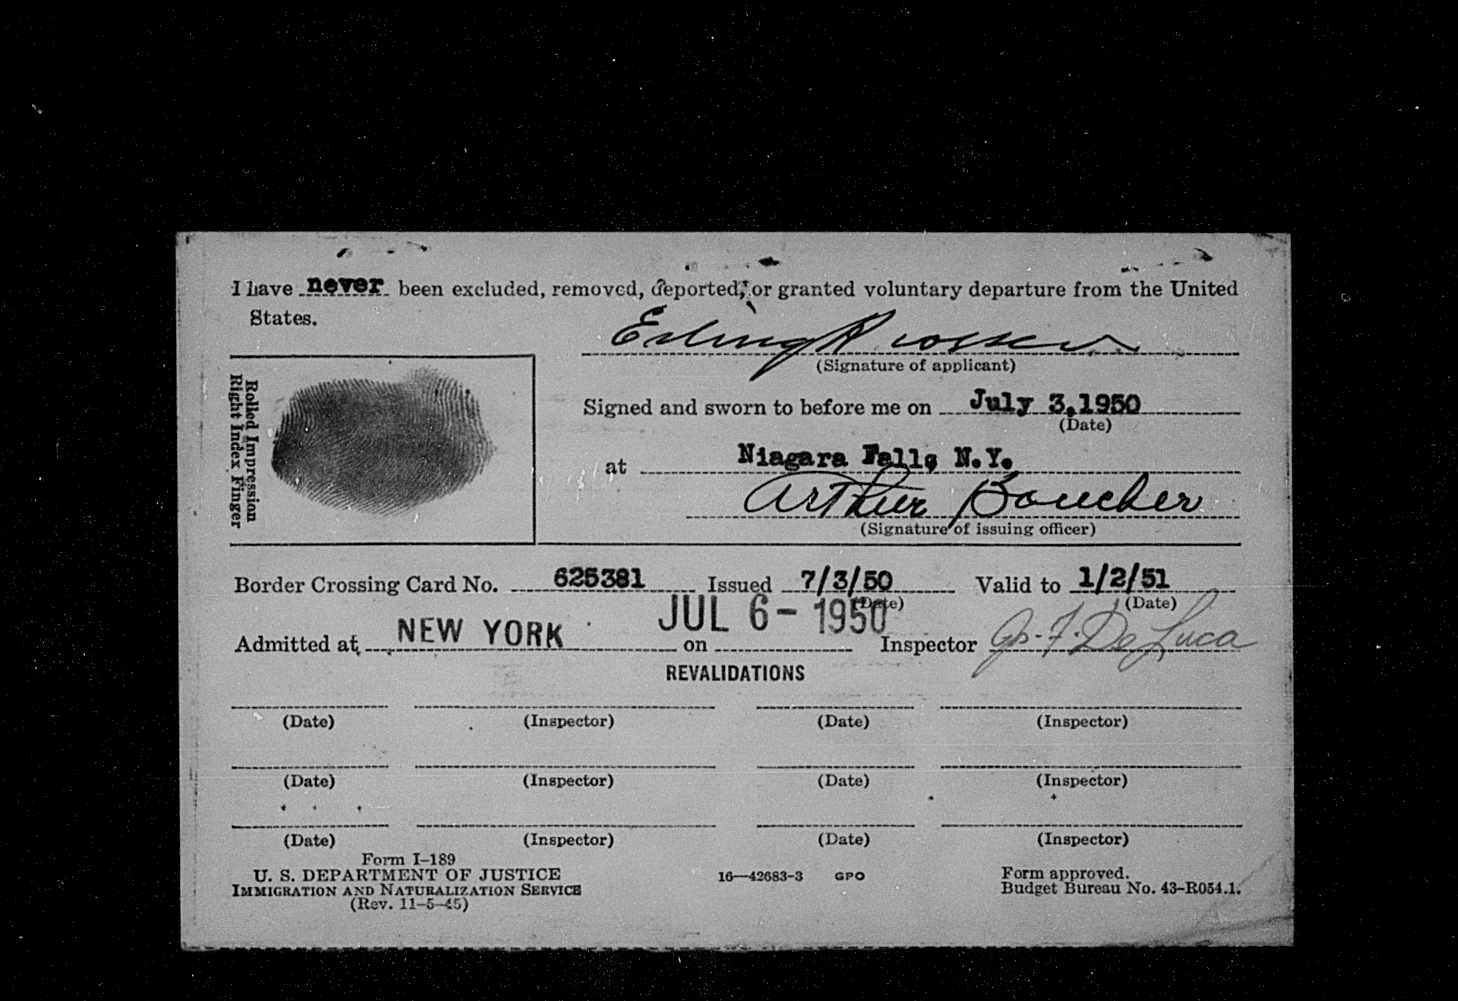 I have never been excluded, removed, deported, or granted voluntary departure from the United
States.
Erling
(Signature of applicant)
Rolled Impression
Right Index Finger
Signed and sworn to before me on July 3,1950
(Date)
at Niagara Falls N.Y.
Arthur Boucher
(Signature of issuing officer)
Border Crossing Card No. 625381 Issued 7/3/50 Valid to 1/2/51
(Date) (Date)
Admitted at NEW YORK on JUL 6 - 1950 Inspector F. De Luca
REVALIDATIONS
(Date) (Inspector) (Date) (Inspector)
(Date) (Inspector) (Date) (Inspector)
(Date) (Inspector) (Date) (Inspector)
Form I-189
U. S. DEPARTMENT OF JUSTICE
IMMIGRATION AND NATURALIZATION SERVICE
(Rev. 11-5-45)
16—42683-3 GPO
Form approved.
Budget Bureau No. 43-R054.1.